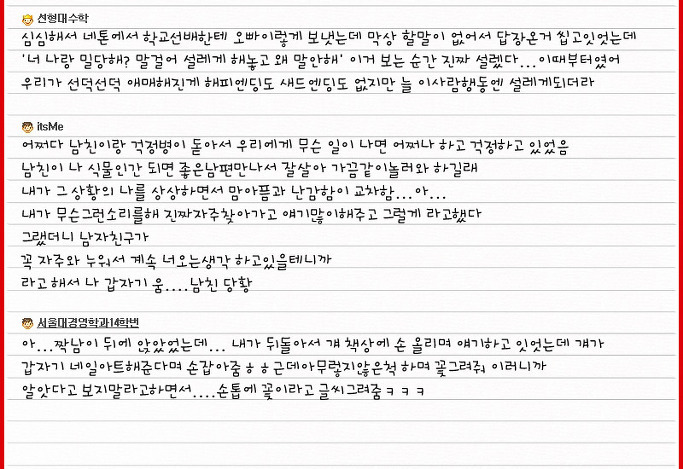 선형대수학
심심해서 네톤에서 학교선배한테 오빠이렇게 보냇는데 막상 할말이 없어서 답장온거 씹고잇엇는데
'너 나랑 밀당해? 말걸어 설레게 해놓고 왜 말안해' 이거 보는 순간 진짜 설렜다...이때부터였어
우리가 선덕선덕 애매해진게 해피엔딩도 새드엔딩도 없지만 늘 이사람행동엔 설레게되더라
itsMe
어쩌다 남친이랑 걱정병이 돋아서 우리에게 무슨 일이 나면 어쩌나 하고 걱정하고 있었음
남친이 나 식물인간 되면 좋은남편만나서 잘살아 가끔같이놀러와 하길래
내가 그 상황의 나를 상상하면서 맘아픔과 난감함이 교차함...아...
내가 무슨그런소리를해 진짜자주찾아가고 얘기많이해주고 그럴게 라고했다
그랬더니 남자친구가
꼭 자주와 누워서 계속 너오는생각 하고있을테니까
라고 해서 나 갑자기 움....남친 당황
서울대경영학과14학번
아...짝남이 뒤에 앉았었는데... 내가 뒤돌아서 걔 책상에 손 올리며 얘기하고 잇엇는데 걔가
갑자기 네일아트해준다며 손잡아줌ㅎㅎ근데아무렇지않은척 하며 꽃그려줘 이러니까
알앗다고 보지말라고하면서....손톱에 꽃이라고 글씨그려줌ㅋㅋㅋ